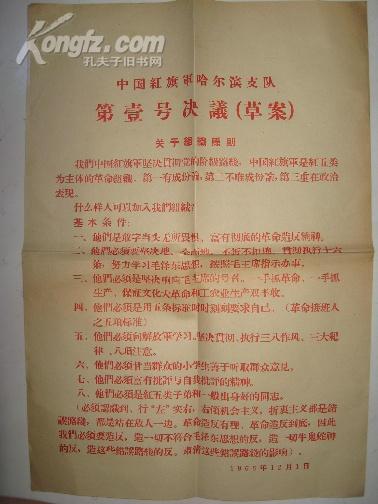 Kongfz.com
孔夫子旧书网
中国紅旗軍哈尔滨支队
第壹号决議(草案)
关于組織原則
我們中国紅旗軍坚决貫彻党的阶級路綫，中国紅旗軍是紅五类
为主体的革命組織。第一有成份論，第二不唯成份論，第三重在政治
表现。
什么样人可以加入我們組織？
基本条件：
一、他們是敢字当头无所畏惧，富有彻底的革命造反精神。
二、他們必須要坚决地、不折不扣地、貫彻执行十六
条，努力学习毛泽东思想，按照毛主席指示办事。
三、他們必須是坚决响应毛主席的号召，一手抓革命、一手抓
生产，保証文化大革命和工农业生产双丰收。
四、他們必須是用五条标准时时刻刻要求自己。（革命接班人
之五項标准）
五、他們必須向解放軍学习。坚决貫彻、执行三八作风、三大紀
律、八項注意。
六、他們必須甘当群众的小学生善于听取群众意见。
七、他們必須富有批評与自我批評的精神。
八、他們必須是紅五类子弟和一般出身好的同志。
（必須認識到、行"左"实右，右傾机会主义，折衷主义都是錯
誤路綫，都是站在敌人一边。革命造反有理、革命造反到底，因此
我們必須要造反，造一切不符合毛泽东思想的反，造一切牛鬼蛇神
的反，造这些錯誤路綫的反。肃清这些錯誤路綫的影响）。
1966年12月1日